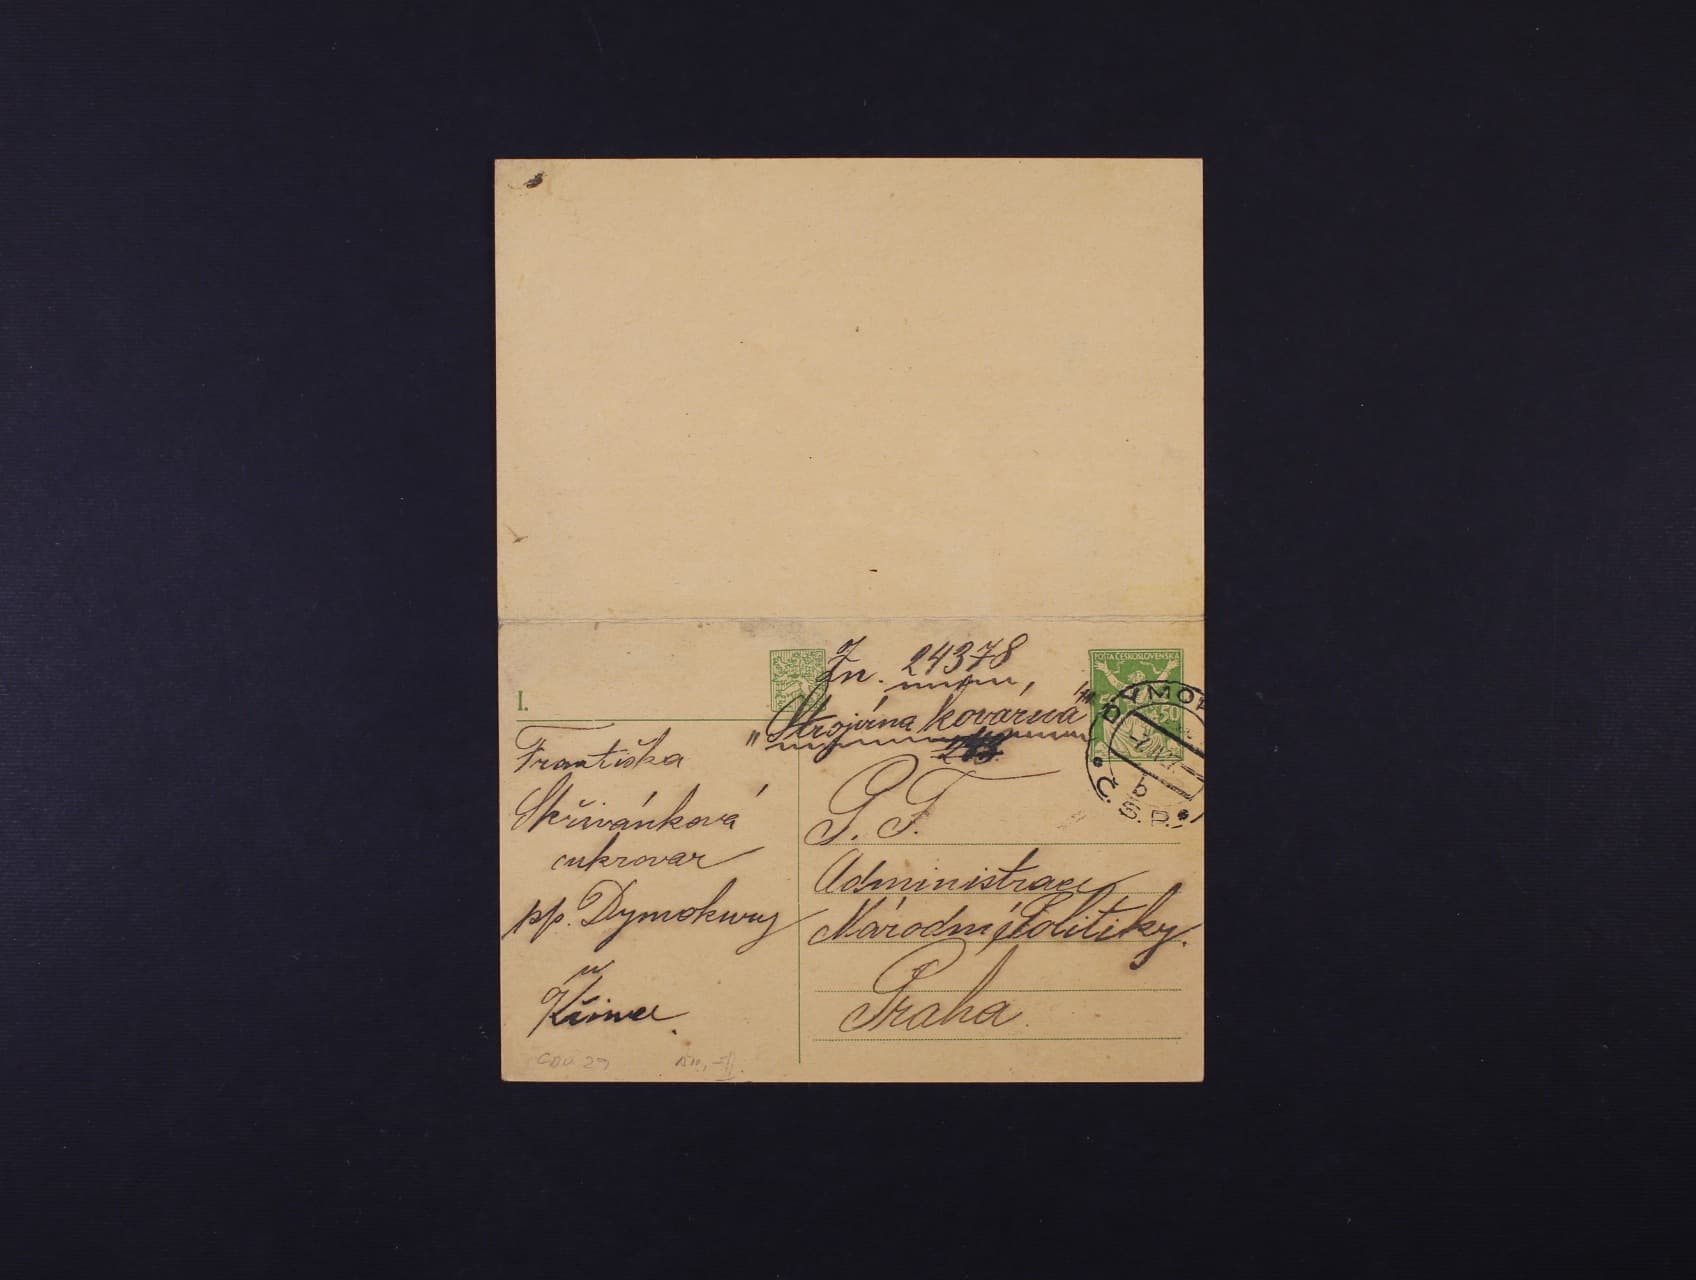 Zn. 24378,
POŠTA ČESKOSLOVENSKÁ
50 50
I.
"Strojírna kovárna"
DYMOK
b
Č. S. R.
Františka
Skřivánková
cukrovar
pp. Dymokury
u
Křince.
P. T.
Administraci
Národní Politiky.
Praha.
CDV 29